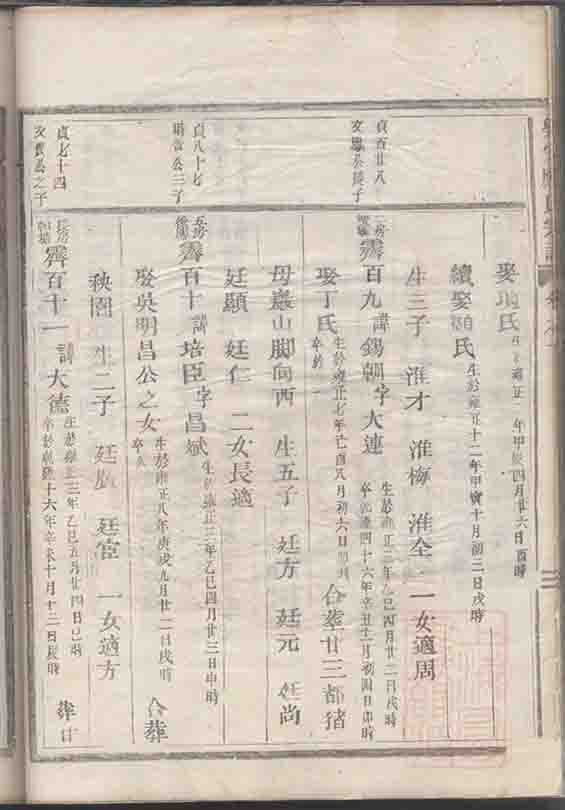 娶 氏 生 雍正 年甲辰四月廿六日酉時
續娶顧氏 生於雍正十二年甲寅十月初三日戌時
生三子 淮才 淮梅 淮全 一女適周
貞百廿八
霽百九 諱錫朝字大連 生於雍正三年乙巳四月廿二日戌時
卒於乾隆四十六年辛丑十二月初四日 時
娶丁氏 生於雍正七年己酉八月初六日 時
卒於 合葬廿三都猪
母巖山脚向西 生五子 廷方 廷元 廷尚
廷顯 廷仁 二女長適
貞八十七
明 公三子
五房
霽百十 諱培臣字昌斌 生於雍正三年乙巳四月廿三日申時
娶吳明昌公之女 生於雍正八年庚戌九月廿二日戌時
卒 合葬
秧園 生二子 廷 廷宦 一女適方
貞七十四
文 公之子
長房
霽百十一 諱大德 生於雍正三年乙巳五月廿四日巳時
卒於乾隆十六年辛未十月十二日辰時 葬廿